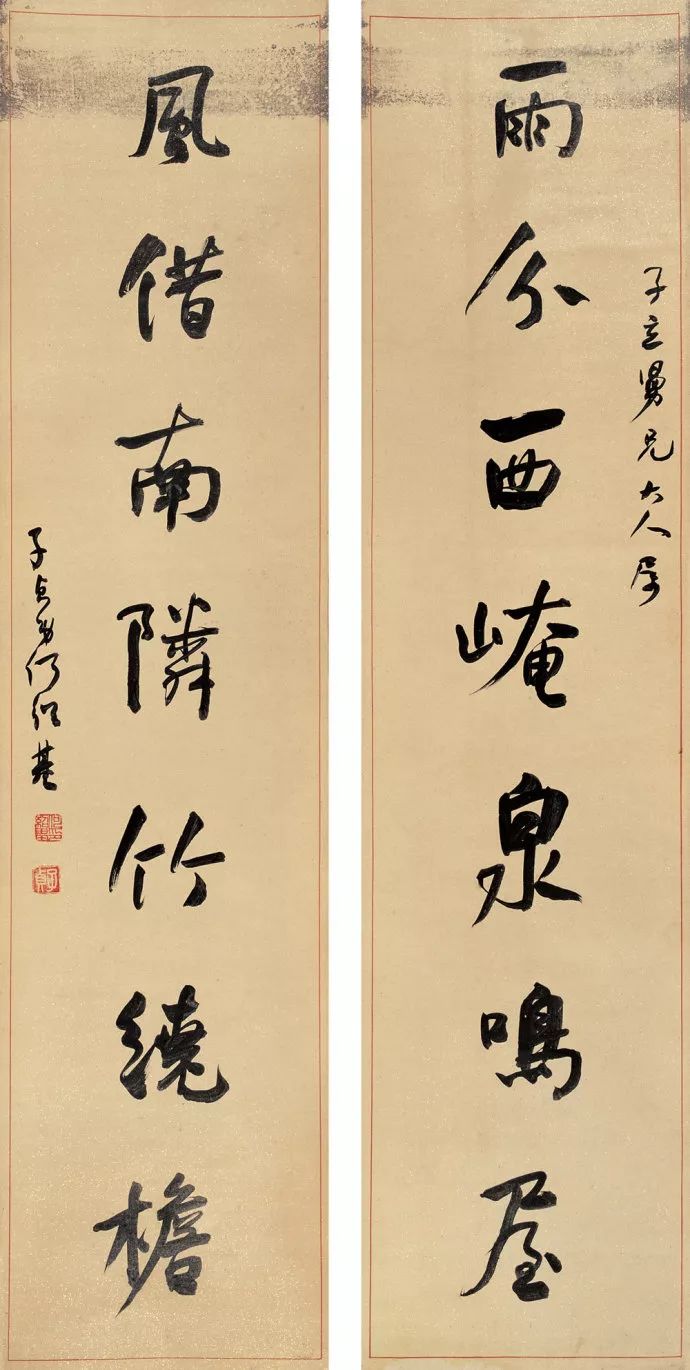 雨分西崦泉鳴屋
子立舅兄大人屬
風借南隣竹繞檐
子貞弟何紹基